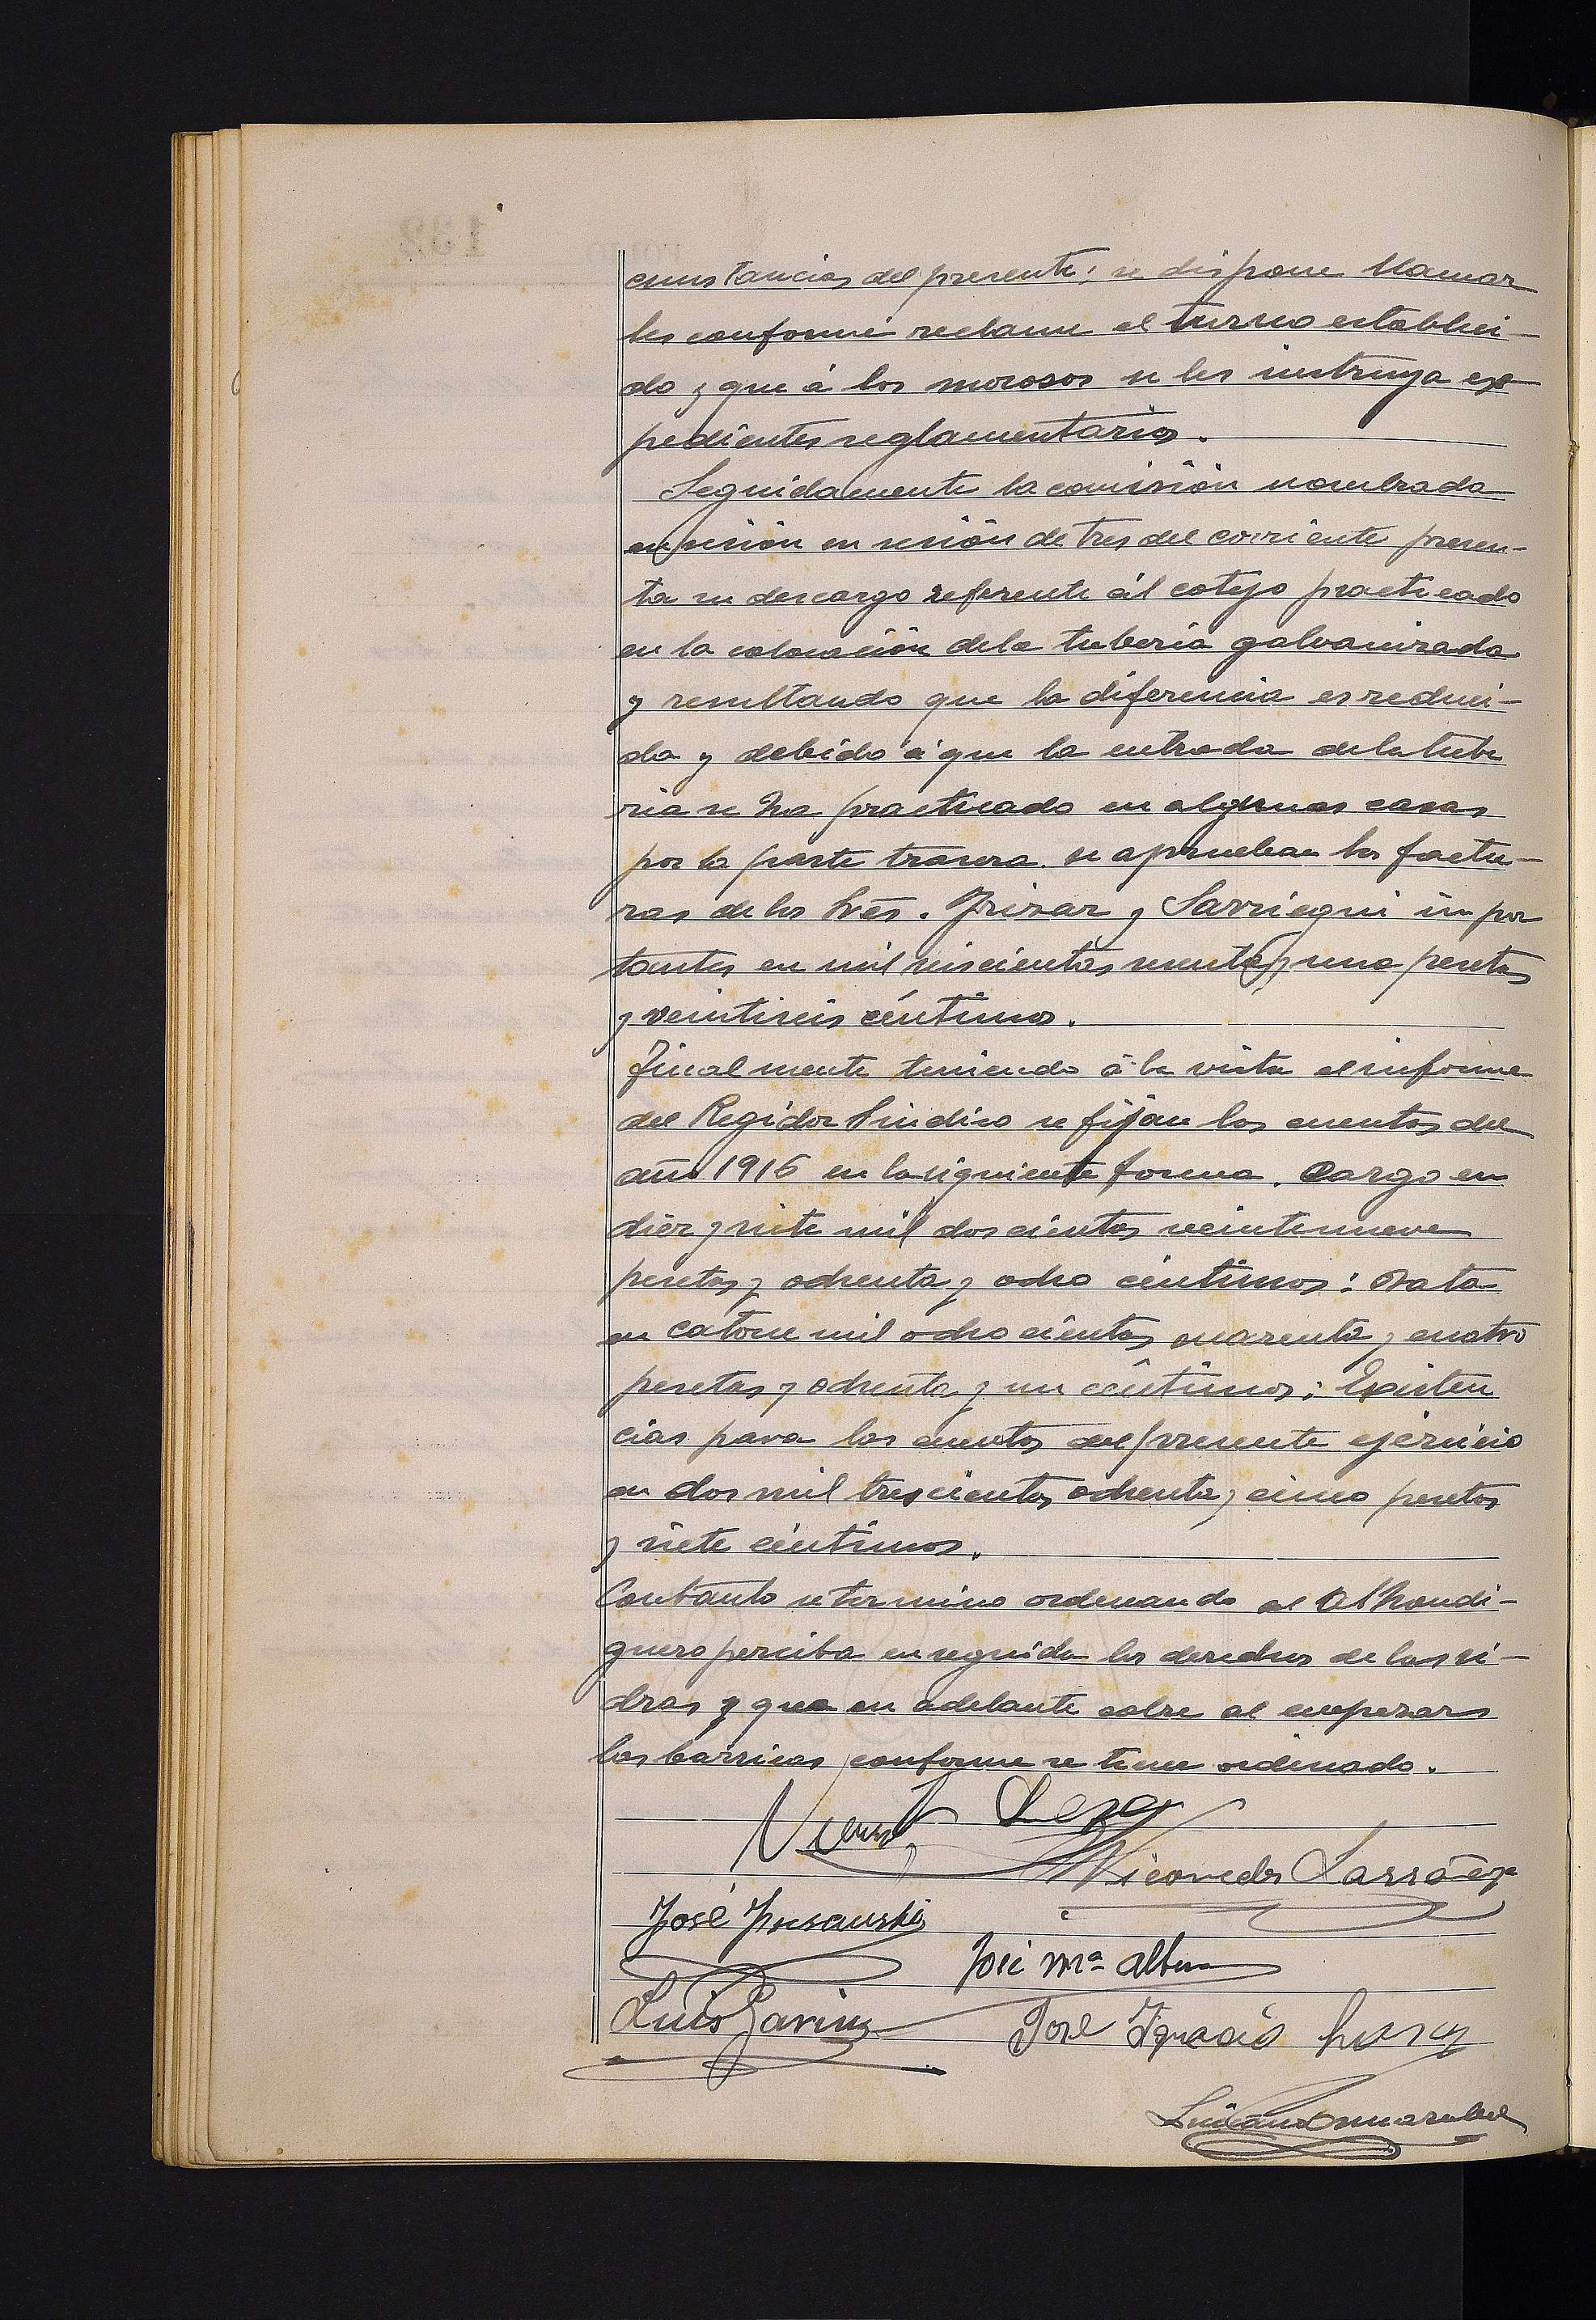 cunstancias del presente; se dispone llamar
les conforme reclame el turno estableci-
do y que á los morosos se les instruya ex-
pedientes reglamentarios.
Seguidamente la comisión nombrada
en sesión en sesión de tres del corriente presen-
ta su descargo referente ál cotejo practicado
en la colocación dela tuberia galvanizada
y resultando que la diferencia es reduci-
da y debido á que la entrada de la tube
ria se ha practicado en algunas casas
por la parte trasera. se aprueban las factu-
ras de los Sres. Irizar y Sarriegui impor
tantes en mil seiscientas y una pesetas
y veintiseis céntimos.
Finalmente teniendo á la vista el informe
del Regidor Sindico se fijan las cuentas del
año 1916 en la siguiente forma. Cargo en
diez y siete mil doscientas veintinueve
pesetas y ochenta y ocho céntimos: Data
en catorce mil ochocientas cuarenta y cuatro
pesetas y ochenta y un céntimos; Existen
cias para las cuentas del presente ejercicio
en dos mil trescientas ochenta y cinco pesetas
y siete céntimos.
Contanto se termino ordenando al Alhondi-
guero perciba en seguida los derechos de las si-
dras y que en adelante cobre al empezar
las barricas conforme se tiene ordenado.
Nicomedes Larráeza
José
José Mª
Luis
José Ignacio